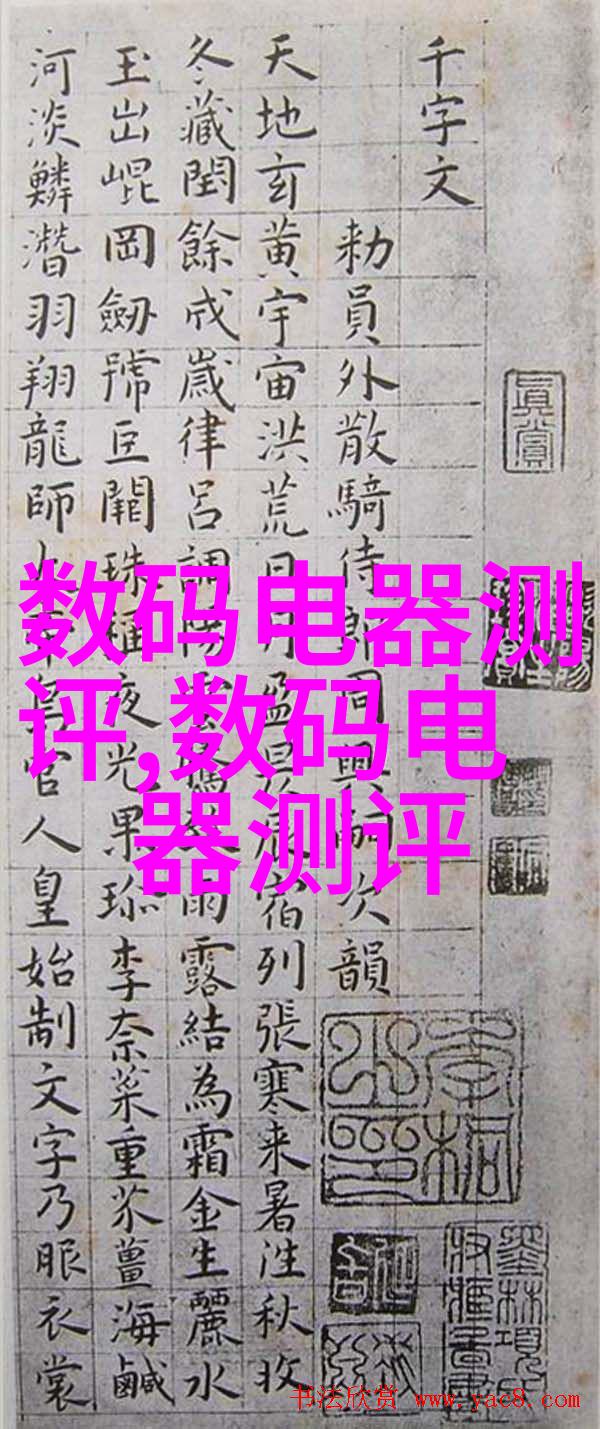 千字文
勑員外散騎侍郎周興嗣次韻
天地玄黄宇宙洪荒日月盈昃辰宿列張寒来暑往秋收
冬藏閏餘成歲律呂調陽雲騰致雨露結為霜金生麗水
玉出崐岡劒號巨闕珠稱夜光果珎李柰菜重芥薑海鹹
河淡鱗潛羽翔龍師火帝鳥官人皇始制文字乃服衣裳
真賞
数码电器测
评,数码电
器测评
书法欣赏 www.yac8.com